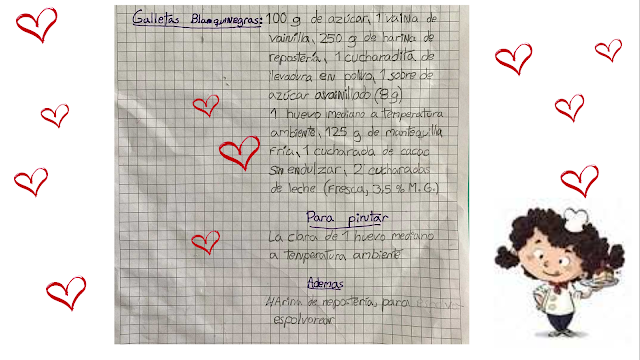 Galletas Blanquinegras: 100 g de azúcar, 1 vaina de
vainilla, 250 g de harina de
repostería, 1 cucharadita de
levadura en polvo, 1 sobre de
azúcar avainillado (8g)
1 huevo mediano a temperatura
ambiente, 125 g de mantequilla
Fría, 1 cucharada de cacao
sin endulzar, 2 cucharadas
de leche (Fresca, 3,5 % M.G.)
Para pintar
La clara de 1 huevo mediano
a temperatura ambiente
Ademas
HArina de repostería, para
espolvorear